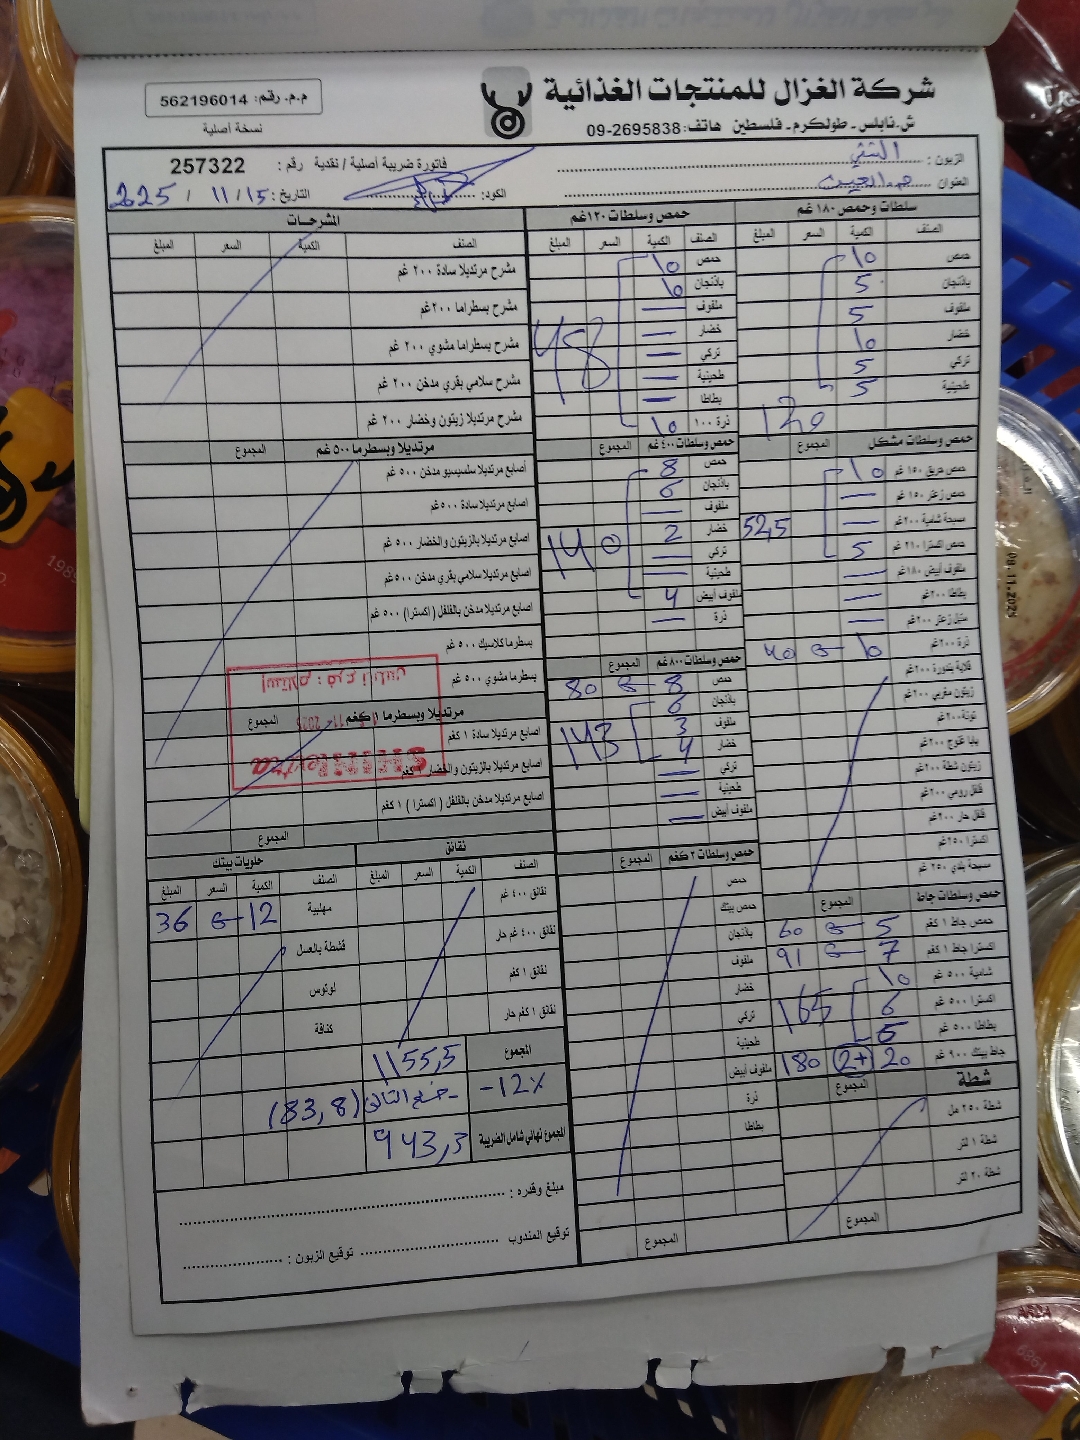 شركة الغزال للمنتجات الغذائية
ش.نابلس - طولكرم - فلسطين هاتف: 09-2695838
م.م. رقم: 562196014
نسخة أصلية
الزبون :
العنوان :
فاتورة ضريبية أصلية / نقدية رقم : 257322
الكود:
التاريخ: 15 / 11 / 225
سلطات وحمص ١٨٠ غم
الصنف الكمية السعر المبلغ
حمص 10
باذنجان 5
ملفوف 5
خضار 10
تركي 5
طحينية 5
120
حمص وسلطات مشكل المجموع
حمص حريق ١٥٠ غم 10
حمص زعتر ١٥٠ غم —
مسبحة شامية ٢٠٠ غم — 52,5
حمص اكسترا ٢١٠ غم 5
ملفوف أبيض ١٨٠ غم —
بطاطا ٢٠٠ غم —
متبل زعتر ٢٠٠ غم —
ذرة ٢٠٠ غم 10 40
قلاية بندورة ٢٠٠ غم
زيتون مغربي ٢٠٠ غم
تونة ٢٠٠ غم
بابا غنوج ٢٠٠ غم
زيتون شطة ٢٠٠ غم
فلفل رومي ٢٠٠ غم
فلفل حار ٢٠٠ غم
اكسترا ٢٥٠ غم
مسبحة بلدي ٢٥٠ غم
حمص وسلطات جاط المجموع
حمص جاط ١ كغم 5 60
اكسترا جاط ١ كغم 7 91
شامية ٥٠٠ غم 10
اكسترا ٥٠٠ غم 6 165
بطاطا ٥٠٠ غم 5
جاط بيتك ٩٠٠ غم 20 2+ 180
شطة المجموع
شطة ٢٥٠ مل
شطة ١ لتر
شطة ٢٠ لتر
المجموع
حمص وسلطات ١٢٠ غم
الصنف الكمية السعر المبلغ
حمص 10
باذنجان 10
ملفوف —
خضار —
تركي — 48
طحينية —
بطاطا —
ذرة ١٠٠ 10
حمص وسلطات ٤٠٠ غم المجموع
حمص 8
باذنجان 6
ملفوف —
خضار 2
تركي — 140
طحينية —
ملفوف أبيض 4
ذرة —
حمص وسلطات ٨٠٠ غم المجموع
حمص 8 80
باذنجان 6
ملفوف 3 143
خضار 4
تركي —
طحينية —
ملفوف أبيض —
حمص وسلطات ٢ كغم المجموع
حمص
حمص بيتك
باذنجان
ملفوف
خضار
تركي
طحينية
ملفوف أبيض
ذرة
بطاطا
المجموع
المشرحات
الصنف الكمية السعر المبلغ
مشرح مرتديلا سادة ٢٠٠ غم
مشرح بسطراما ٢٠٠ غم
مشرح بسطراما مشوي ٢٠٠ غم
مشرح سلامي بقري مدخن ٢٠٠ غم
مشرح مرتديلا زيتون وخضار ٢٠٠ غم
مرتديلا وبسطرما ٥٠٠ غم المجموع
أصابع مرتديلا سلميسيو مدخن ٥٠٠ غم
اصابع مرتديلا سادة ٥٠٠ غم
اصابع مرتديلا بالزيتون والخضار ٥٠٠ غم
اصابع مرتديلا سلامي بقري مدخن ٥٠٠ غم
اصابع مرتديلا مدخن بالفلفل (اكسترا) ٥٠٠ غم
بسطرما كلاسيك ٥٠٠ غم
بسطرما مشوي ٥٠٠ غم
مرتديلا وبسطرما ١ كغم المجموع
اصابع مرتديلا سادة ١ كغم
اصابع مرتديلا بالزيتون والخضار ١ كغم
اصابع مرتديلا مدخن بالفلفل (اكسترا) ١ كغم
المجموع
نقانق
الصنف الكمية السعر المبلغ
نقانق ٤٠٠ غم
نقانق ٤٠٠ غم حار
نقانق ١ كغم
نقانق ١ كغم حار
حلويات بيتك
الصنف الكمية السعر المبلغ
مهلبية 12 36
قشطة بالعسل
لوتوس
كنافة
المجموع 1155,5
-12%
(83,8)
المجموع نهائي شامل الضريبة 943,3
مبلغ وقدره :
توقيع المندوب
توقيع الزبون :